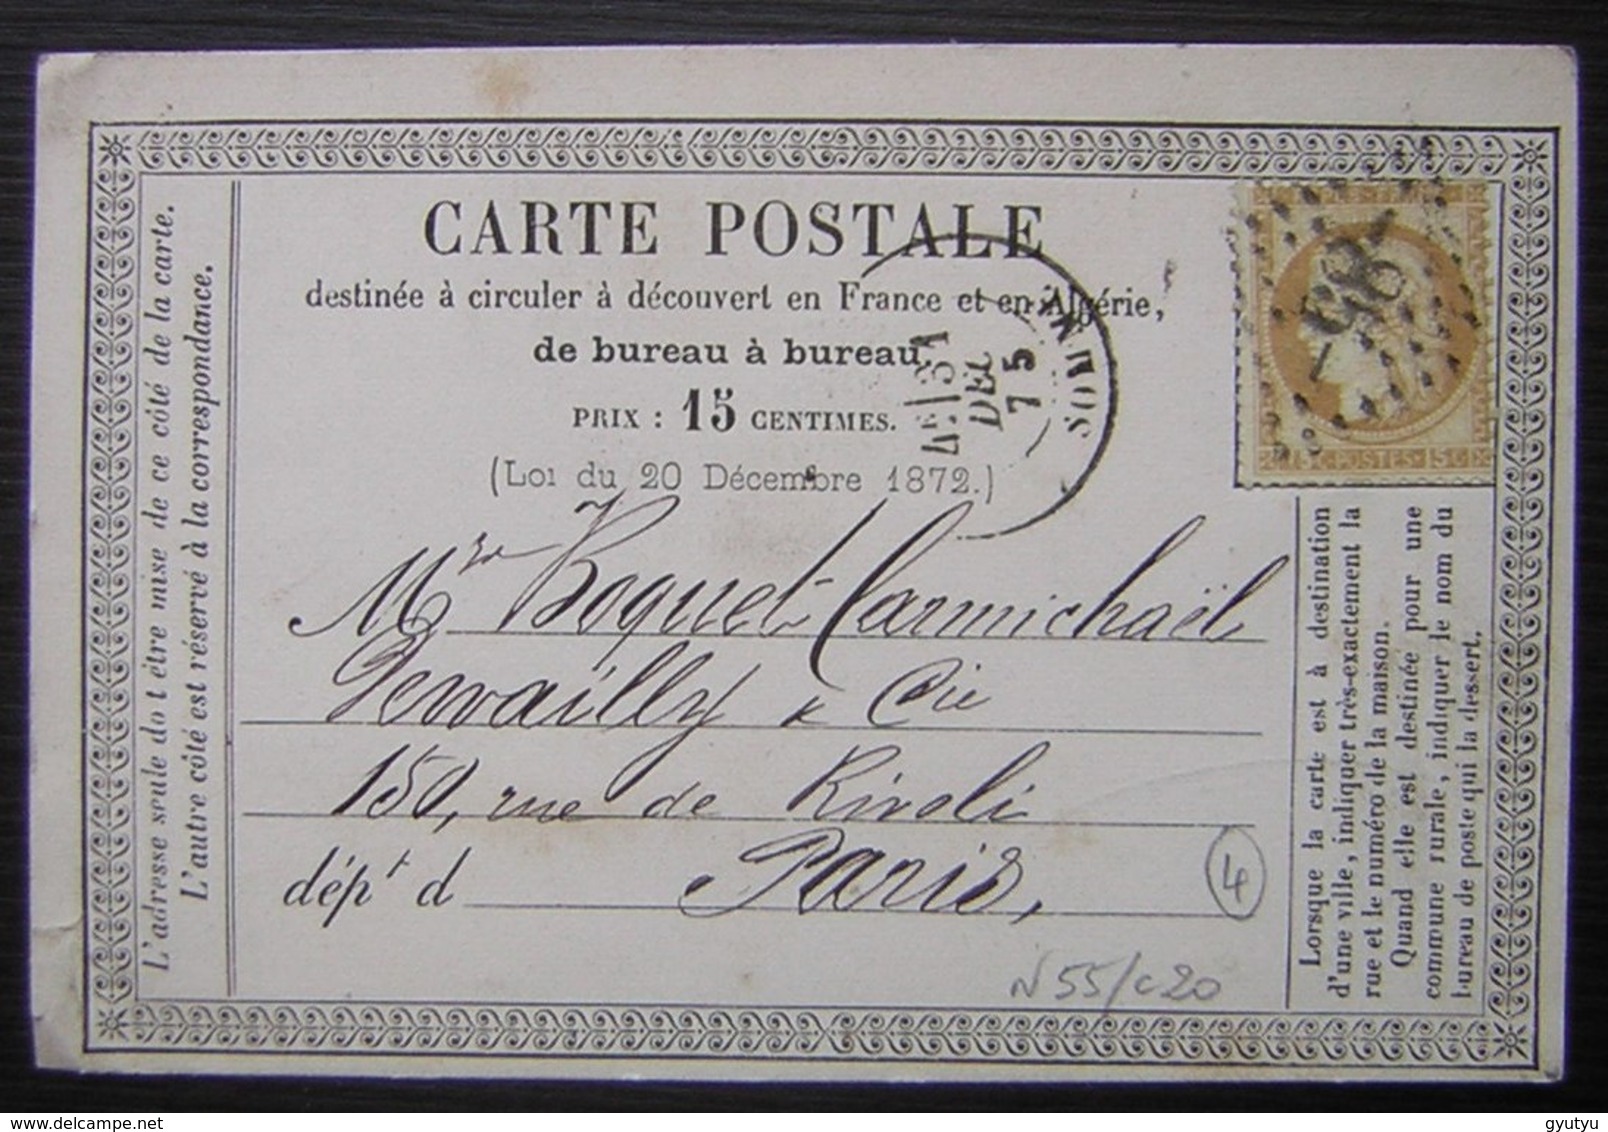 CARTE POSTALE
destinée à circuler à découvert en France et en Algérie,
de bureau à bureau.
PRIX : 15 CENTIMES.
(Loi du 20 Décembre 1872.)
L'adresse seule doit être mise de ce côté de la carte.
L'autre côté est réservé à la correspondance.
31
DEC
75
15 C. POSTES 15 C.
Mrs Boquet Carmichaël
Dewailly & Cie
150, rue de Rivoli
dépt d Paris.
4
N 55/c20
Lorsque la carte est à destination
d'une ville, indiquer très-exactement la
rue et le numéro de la maison.
Quand elle est destinée pour une
commune rurale, indiquer le nom du
bureau de poste qui la dessert.
delcampe.net
gyutyu